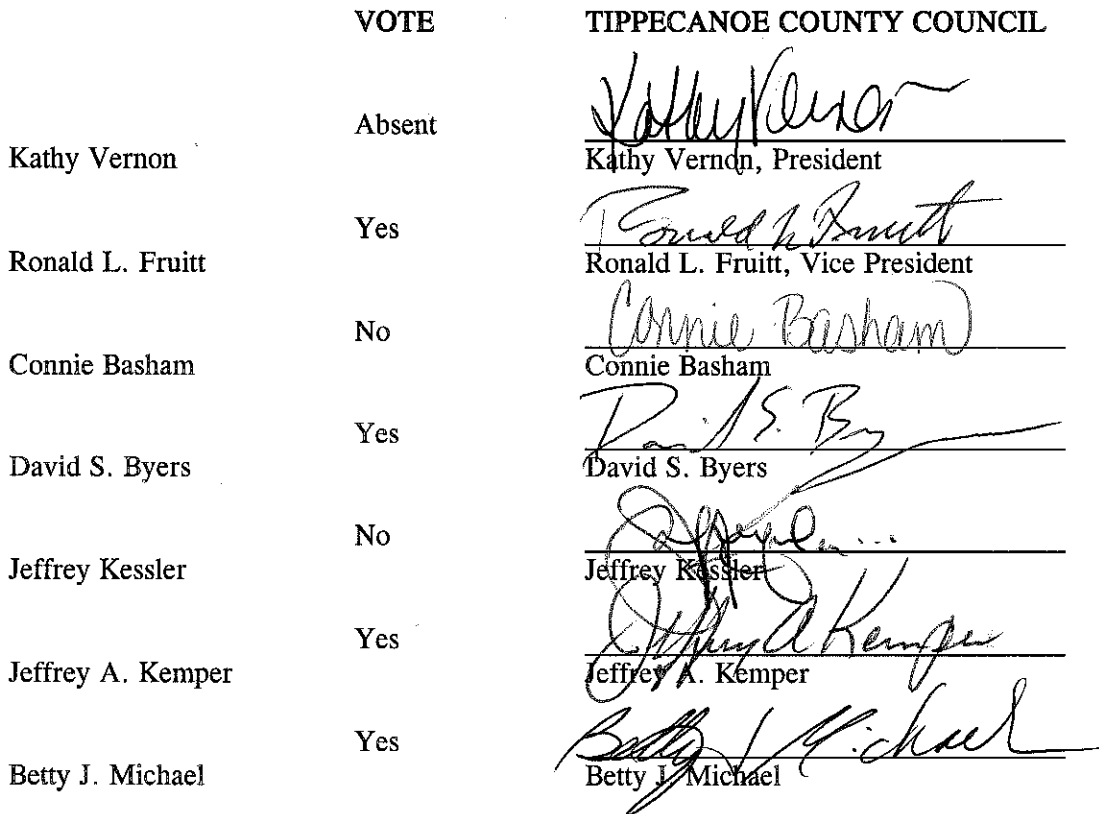 VOTE TIPPECANOE COUNTY COUNCIL
Absent Kathy Vernon
Kathy Vernon Kathy Vernon, President
Yes Ronald L Fruitt
Ronald L. Fruitt Ronald L. Fruitt, Vice President
No Connie Basham
Connie Basham Connie Basham
Yes David S. By
David S. Byers David S. Byers
No
Jeffrey Kessler Jeffrey Kessler
Yes Jeffrey A Kemper
Jeffrey A. Kemper Jeffrey A. Kemper
Yes Betty J Michael
Betty J. Michael Betty J. Michael